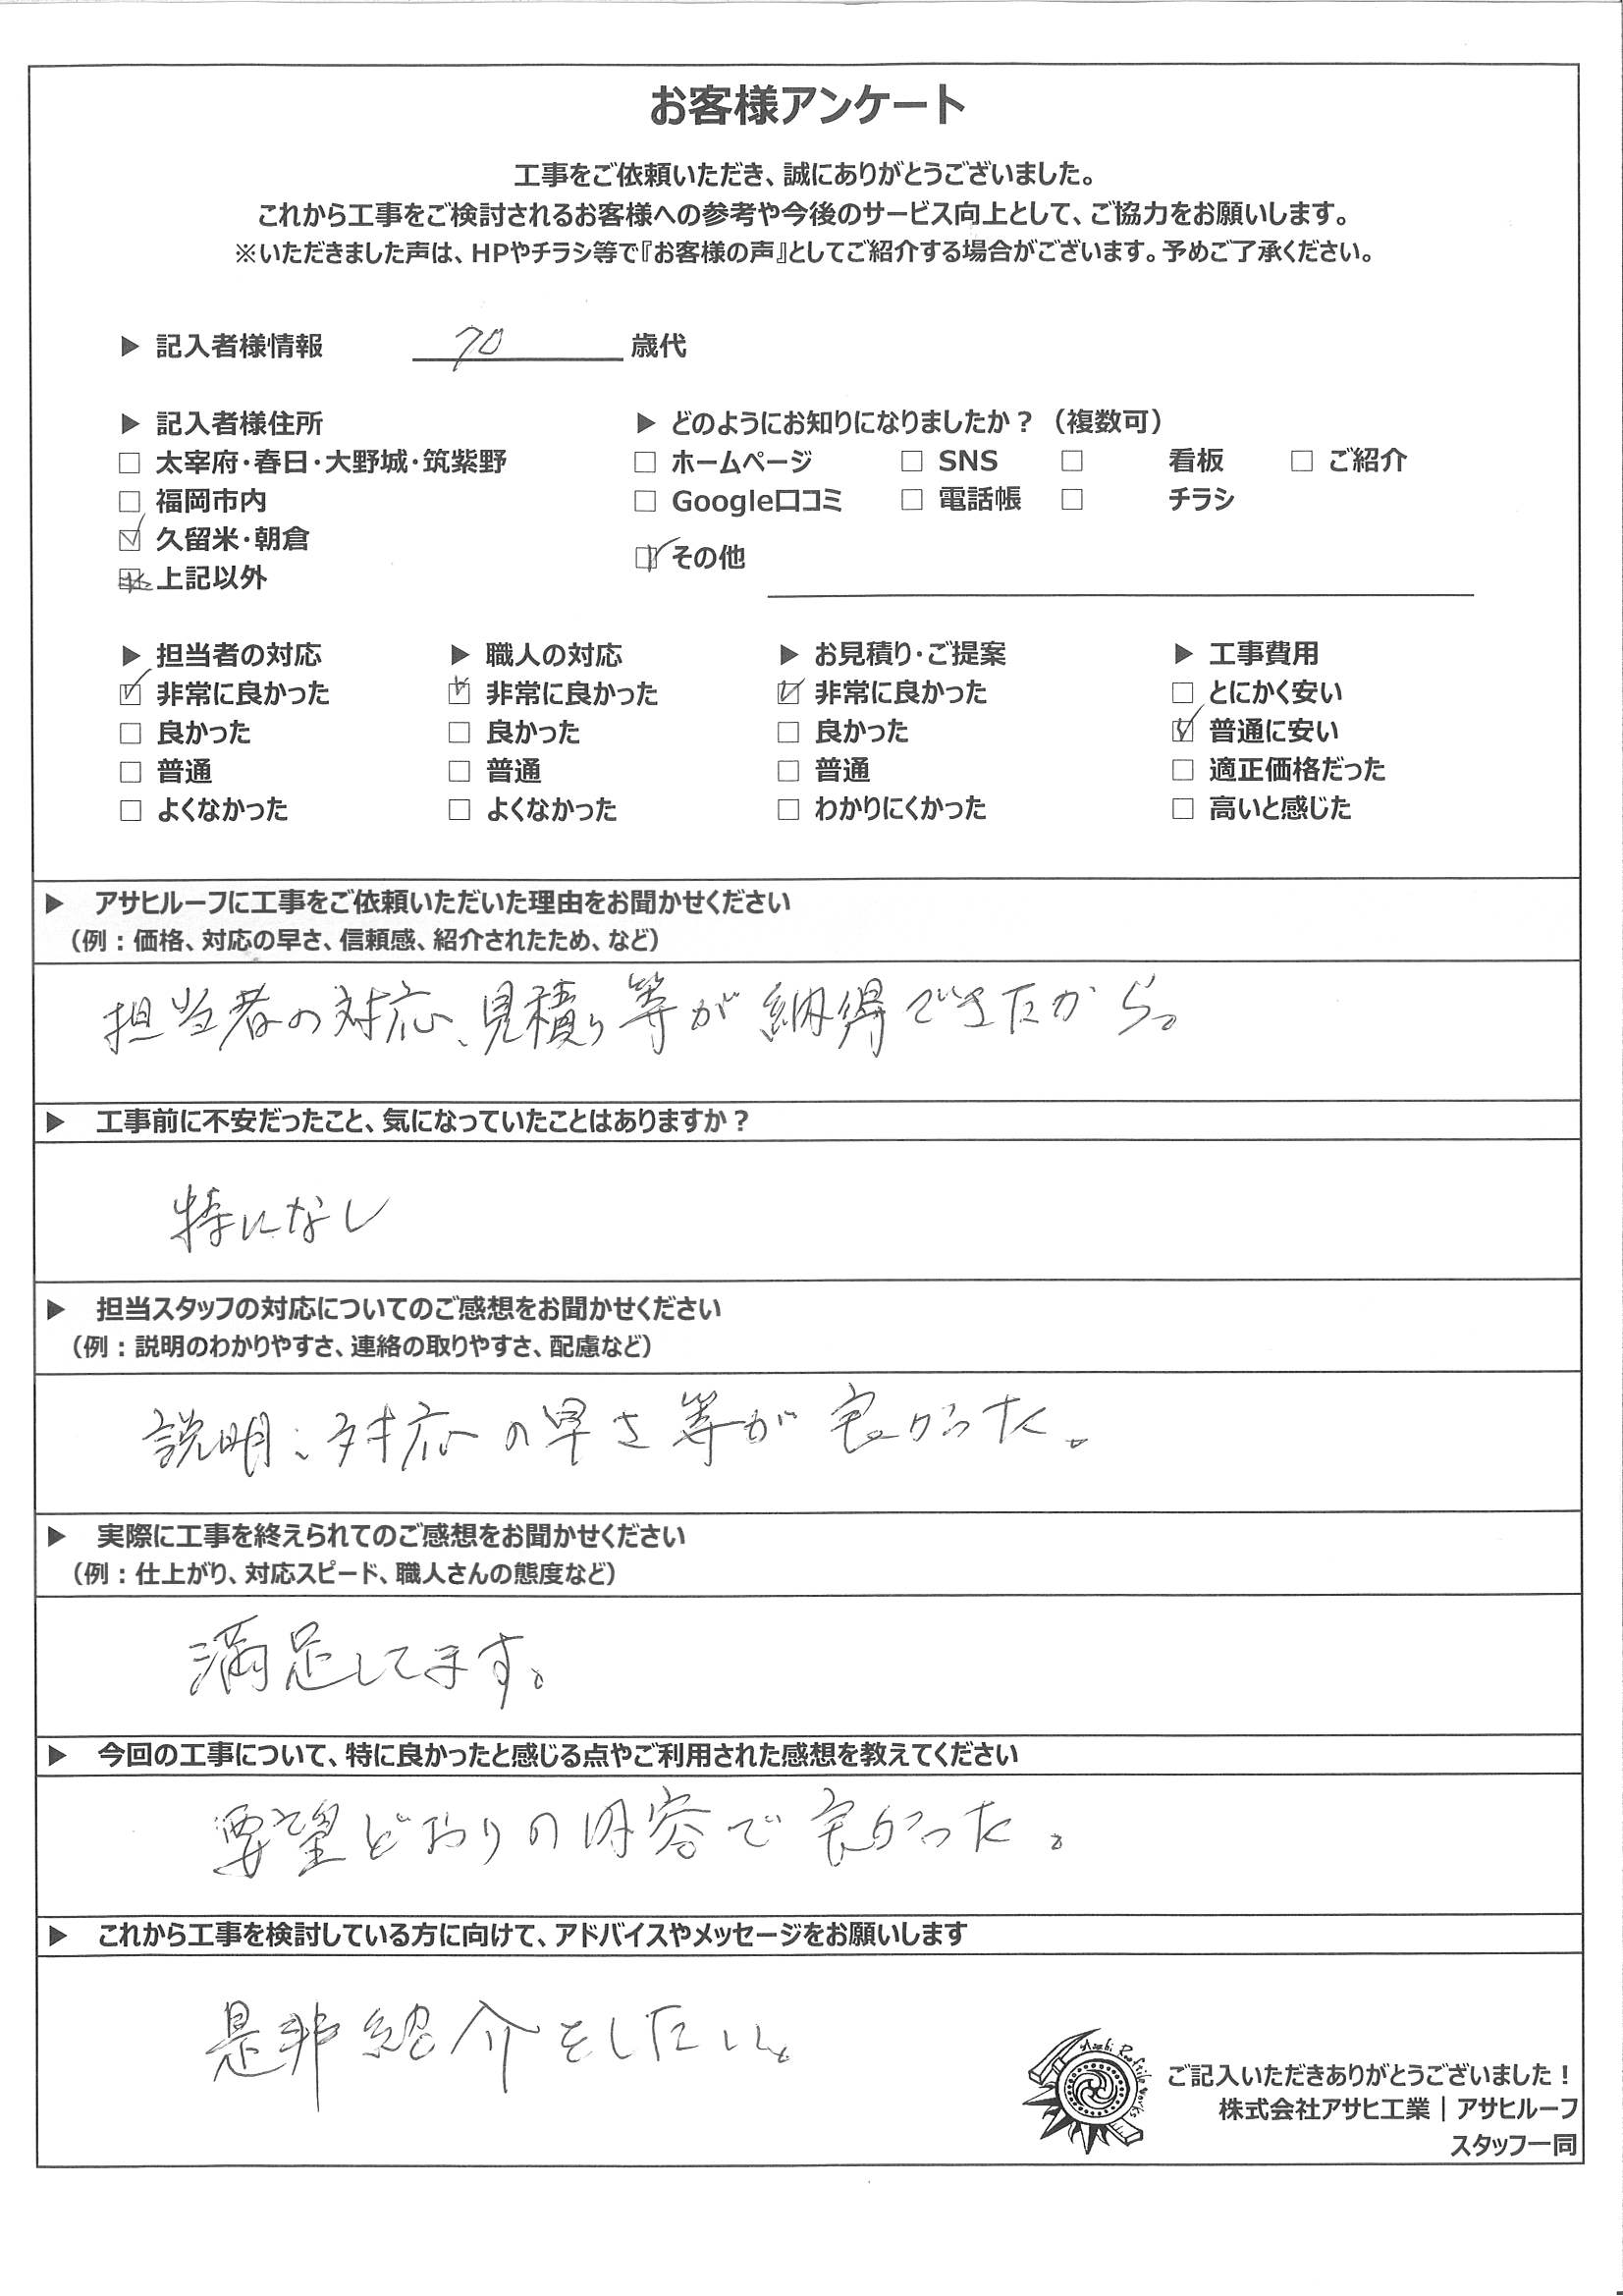 お客様アンケート
工事をご依頼いただき、誠にありがとうございました。
これから工事をご検討されるお客様への参考や今後のサービス向上として、ご協力をお願いします。
※いただきました声は、HPやチラシ等で『お客様の声』としてご紹介する場合がございます。予めご了承ください。
▶ 記入者様情報 70 歳代
▶ 記入者様住所
□ 太宰府・春日・大野城・筑紫野
□ 福岡市内
☑ 久留米・朝倉
□ 上記以外
▶ どのようにお知りになりましたか？（複数可）
□ ホームページ □ SNS □ 看板 □ ご紹介
□ Google口コミ □ 電話帳 □ チラシ
☑ その他
▶ 担当者の対応
☑ 非常に良かった
□ 良かった
□ 普通
□ よくなかった
▶ 職人の対応
☑ 非常に良かった
□ 良かった
□ 普通
□ よくなかった
▶ お見積り・ご提案
☑ 非常に良かった
□ 良かった
□ 普通
□ わかりにくかった
▶ 工事費用
□ とにかく安い
☑ 普通に安い
□ 適正価格だった
□ 高いと感じた
▶ アサヒルーフに工事をご依頼いただいた理由をお聞かせください
（例：価格、対応の早さ、信頼感、紹介されたため、など）
担当者の対応、見積り等が納得できたから。
▶ 工事前に不安だったこと、気になっていたことはありますか？
特になし
▶ 担当スタッフの対応についてのご感想をお聞かせください
（例：説明のわかりやすさ、連絡の取りやすさ、配慮など）
説明、対応の早さ等が良かった。
▶ 実際に工事を終えられてのご感想をお聞かせください
（例：仕上がり、対応スピード、職人さんの態度など）
満足してます。
▶ 今回の工事について、特に良かったと感じる点やご利用された感想を教えてください
要望どおりの内容で良かった。
▶ これから工事を検討している方に向けて、アドバイスやメッセージをお願いします
是非紹介をしたい。
Asahi Rooftile Works
ご記入いただきありがとうございました！
株式会社アサヒ工業｜アサヒルーフ
スタッフ一同